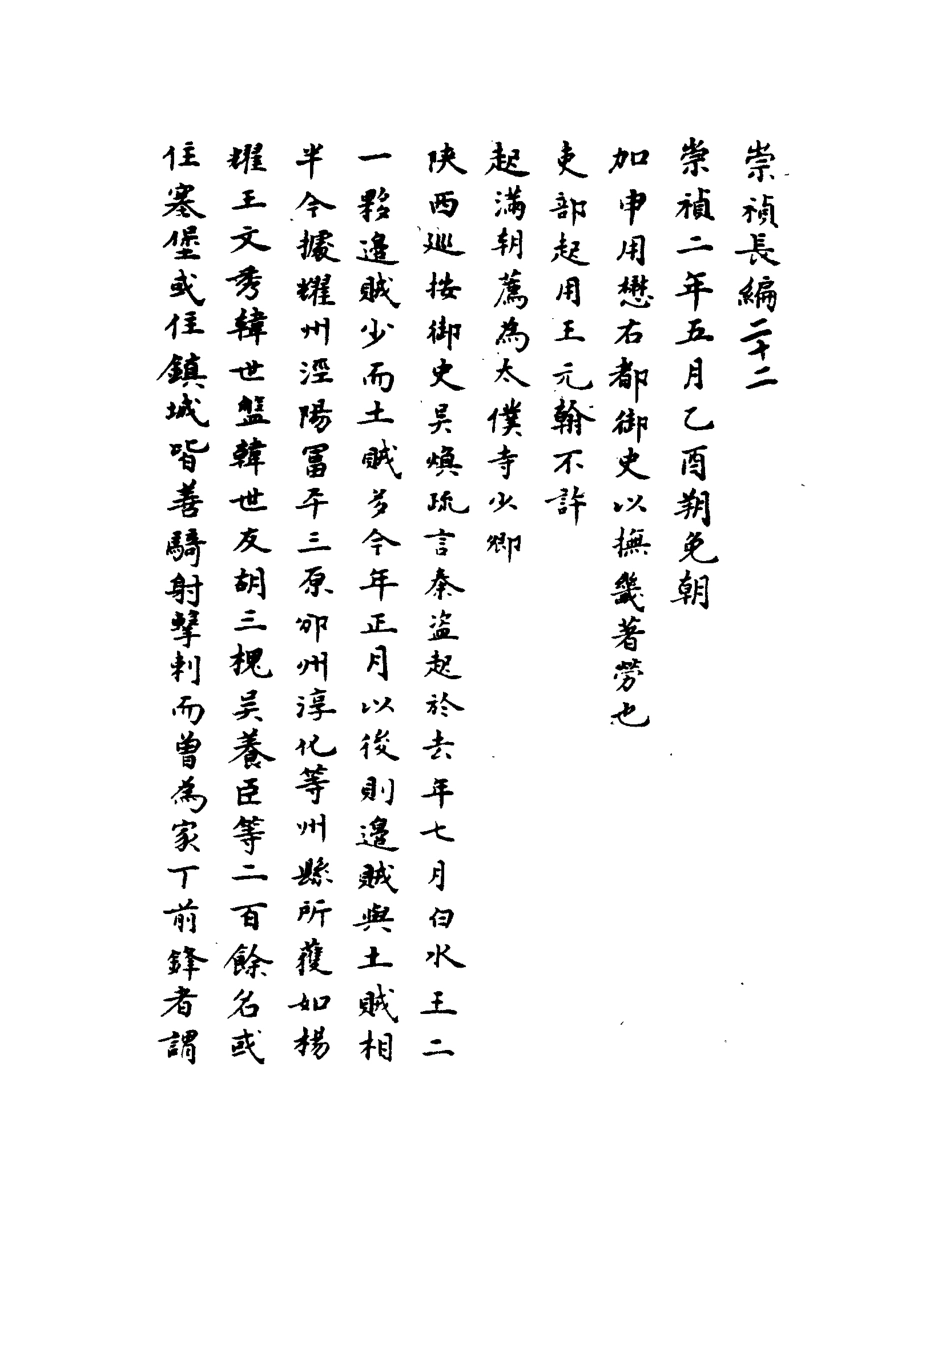 崇禎長編二十二
崇禎二年五月乙酉朔免朝
加申用懋右都御史以撫畿著勞也
吏部起用王元翰不許
起滿朝薦為太僕寺少卿
陝西巡按御史吳煥疏言秦盜起於去年七月白水王二
一夥邊賊少而土賊多今年正月以後則邊賊與土賊相
半今據耀州涇陽富平三原邠州淳化等州縣所獲如楊
耀王文秀韓世盤韓世友胡三槐吳養臣等二百餘名或
住寨堡或住鎮城皆善騎射擊刺而曾為家丁前鋒者謂